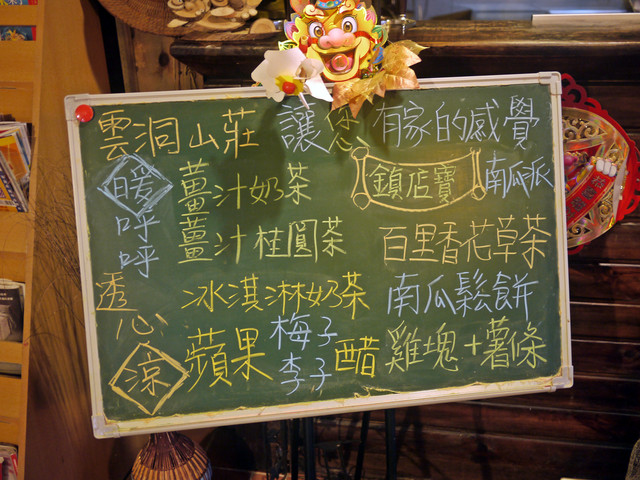 雲洞山莊 讓您 有家的感覺
暖呼呼 薑汁奶茶 鎮店寶 南瓜派
薑汁桂圓茶 百里香花草茶
透心涼 冰淇淋奶茶 南瓜鬆餅
蘋果 梅子 李子 醋 雞塊+薯條